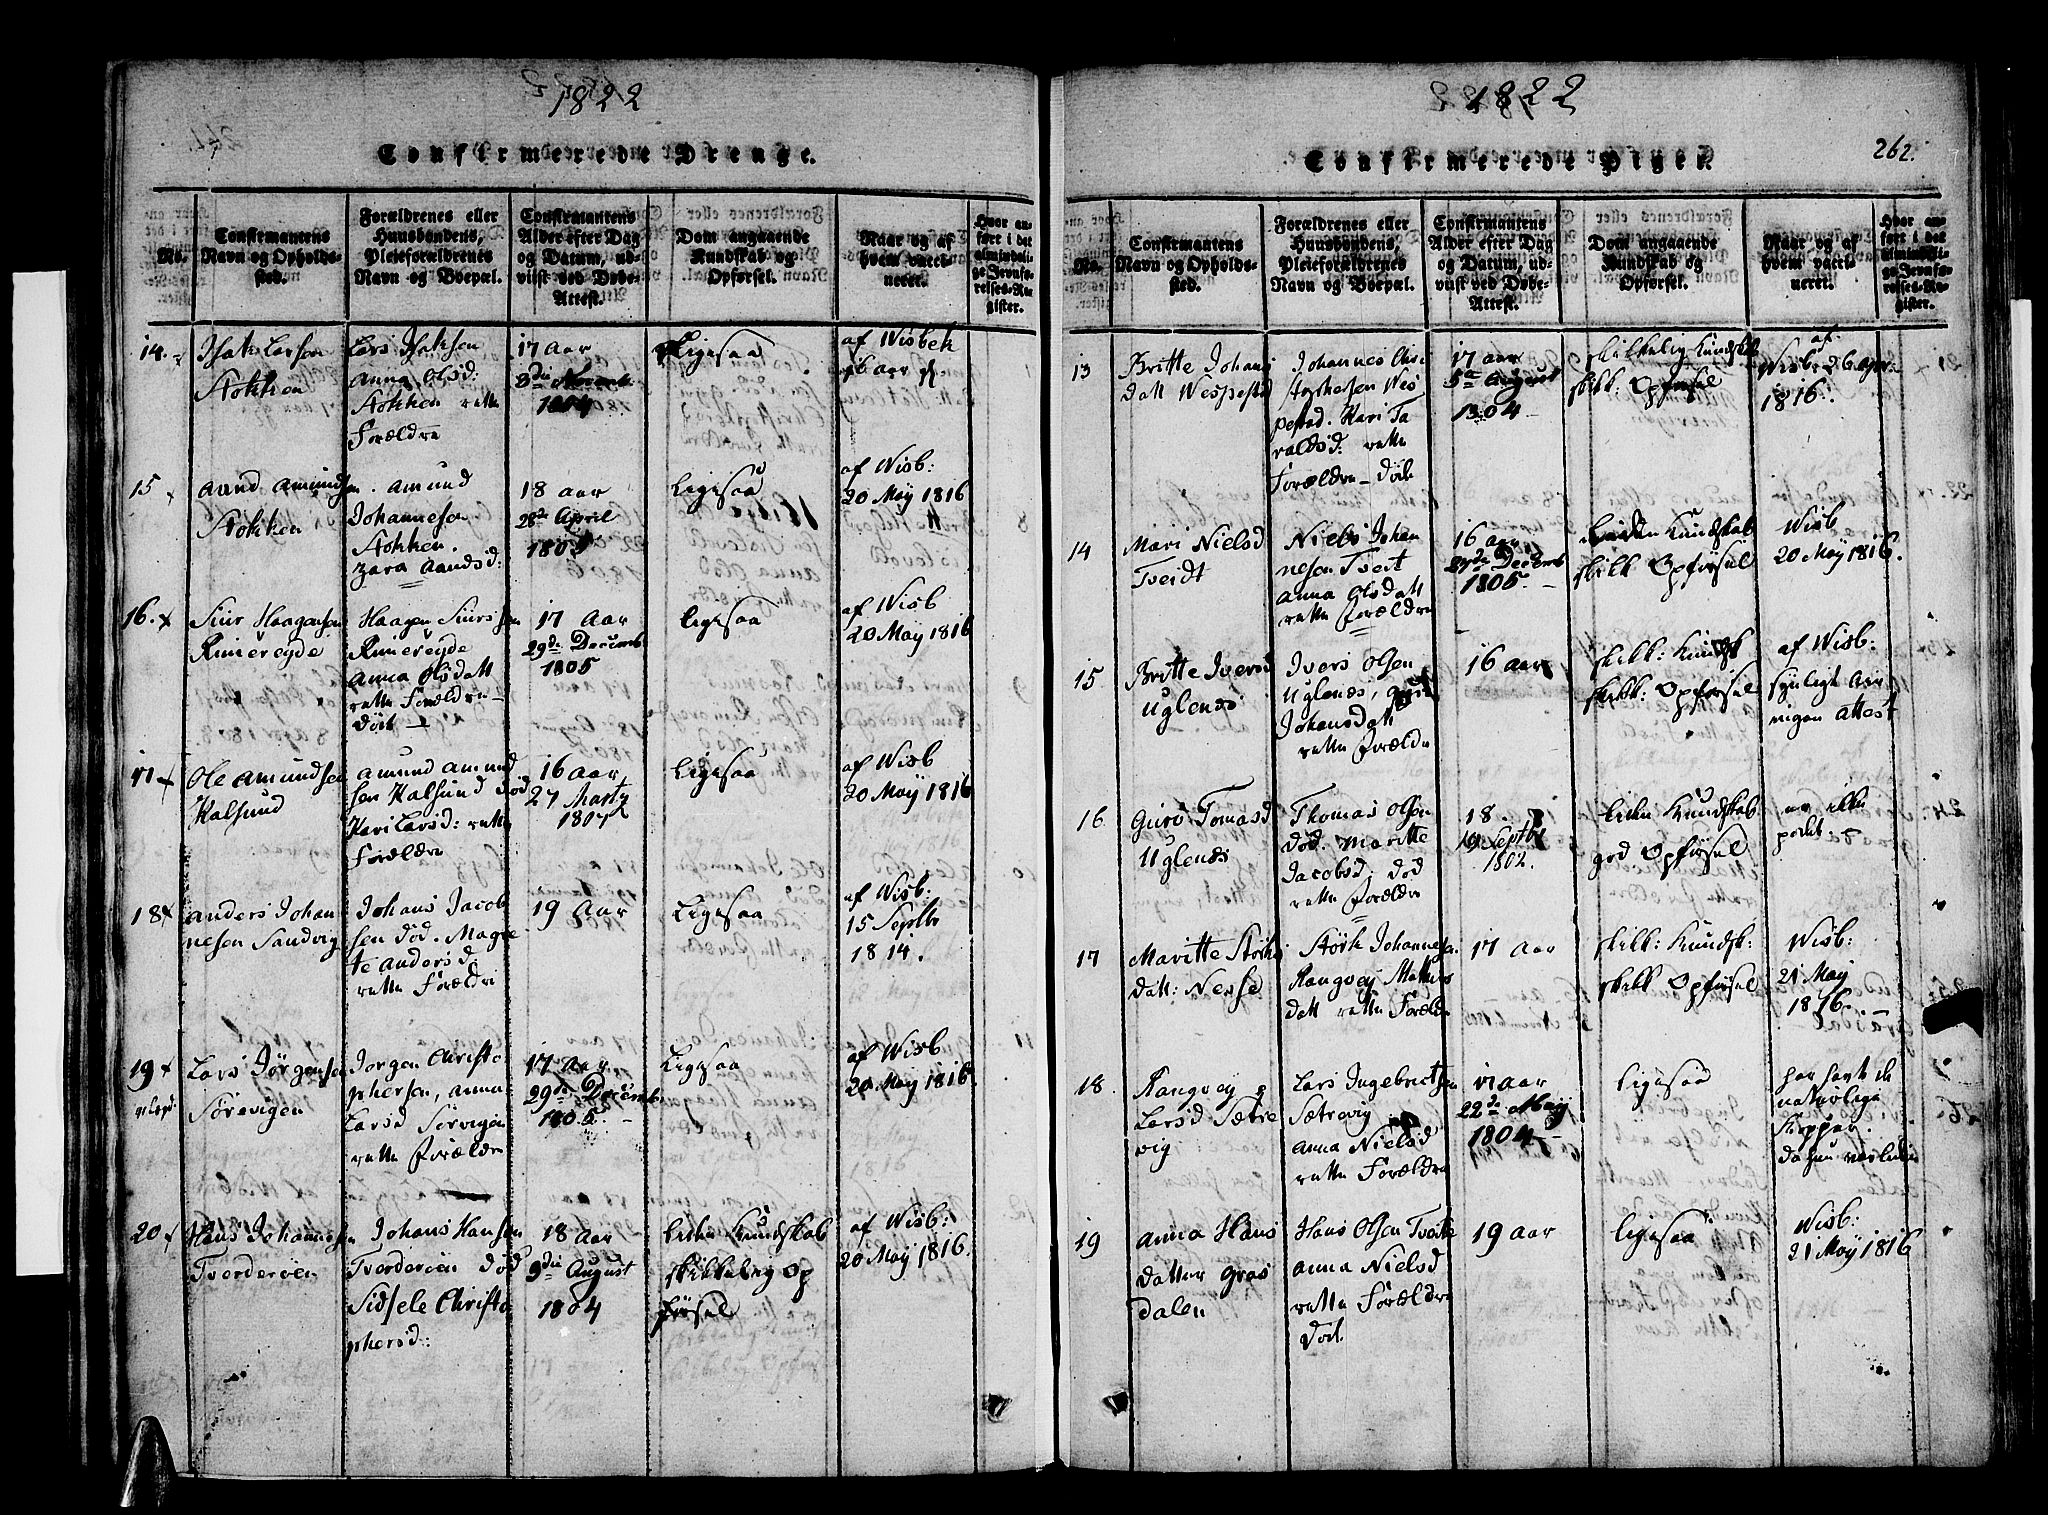 1822
Confirmerede Drenge.
No.
Confirmantens Navn og Opholdssted.
Forældrenes eller Huusbondens, Pleieforældrenes Navn og Boepæl.
Confirmantens Alder efter Dag og Datum, udviist ved Døbe-Attest.
Dom angaaende Kundskab og Opførsel.
Naar og af hvem vaccineret.
Hvor anført i det almindelige Jevnførelses-Register.
14.
Isak Larsen
Stokken
Lars Isaksen
Anna Olsd:
Stokken rette
Forældre
17 Aar
1804
Ligesaa
af Wisbek
15
Aand Amundsen
Stokken
Amund
Johannesen
Stokken.
Zara Aandsd:
18 aar
28de April
Ligesaa
af Wisb:
20 May 1816
16.
Siur Haagensen
Rimereyde
Haagen Siursen
Rimereyde
Anna Olsdatt
rette Forældre
17 Aar
29de Decemb
1805
Ligesaa
af Wisb
20 May 1816
17
Ole Amundsen
Kalsund
Amund Amund
sen Kalsund død
Kari Larsd: rette
Forældre
16 aar
27 Marty
1807
Ligesaa
af Wisb
20 May 1816
18
Anders Johan
nesen Sandvig
Johans Jacob
sen død. Magre
te Andersd:
rette Forældre
19 Aar
Ligesaa
af Wisb:
15 Septbr
1814.
19
Lars Jørgensen
Sørevigen
Jørgen Christo
phersen, Anna
Larsd Sørvigen
rette Forældre
17 Aar
29de Decemb
1805.
Ligesaa
af Wisb
20 May 1816
20
Hans Johannesen
Tverderøen
Johans Hansen
Tverderøen død
Sidsele Christo
phersd:
18 aar
9die August
1804
Liden Kundskab
skikkelig Op
førsel
af Wisb:
20 May 1816.
1822
262.
Confirmerede Piger.
No.
Confirmantens Navn og Opholdssted.
Forældrenes eller Huusbondens, Pleieforældrenes Navn og Boepæl.
Confirmantens Alder efter Dag og Datum, udviist ved Døbe-Attest.
Dom angaaende Kundskab og Opførsel.
Naar og af hvem vaccineret.
Hvor anført i det almindelige Jevnførelses-Register.
13
Britte Johans
datt Wespestad
Johannes Chri
stophersen Wes
pestad. Kari Ta
raldsd: rette
Forældre
17 aar
5te August
1804
skikkelig Kundskab
skikk: Opførsel
af
1816.
14
Mari Nielsd
Tveidt
Niels Johan
nesen Tveit
Anna Olsdatt
rette Forældre
16 aar
29de Decemb
1805.
Liden Kundskab
skikk Opførsel
Wisb
20 May 1816.
15
Britte Iversd
Uglenes
Ivers Olsen
Uglenes,
Johansdatt
rette Forældre
16 aar
skikk: Kundsk
skikk: Opførsel
af Wisb:
attest
16
Guro Tomasd
Uglenes
Thomas Olsen
død. Maritte
Jacobsd; død
rette Forældre
18.
Septbr
1802.
Liden Kundskab
god Opførsel
17
Maritte Størks
datt: Nesse
Størk Johannesen
Rangvey Mathias
datt rette Forældre
17 aar
skikk: Kundsk:
skikk Opførsel
Wisb:
21 May
1816.
18
Rangvey
Larsd Sætre
vig
Lars Ingebrietsen
Sætrevig
Anna Nielsd
rette Forældre
17 aar
22de May
1804
Ligesaa
har havt de
naturlige
Kopper.
19
Anna Hans
datter Gras
dalen
Hans Olsen Tveite
Anna Nielsd
rette Forældre
19 aar
Ligesaa
Wisb:
21 May 1816